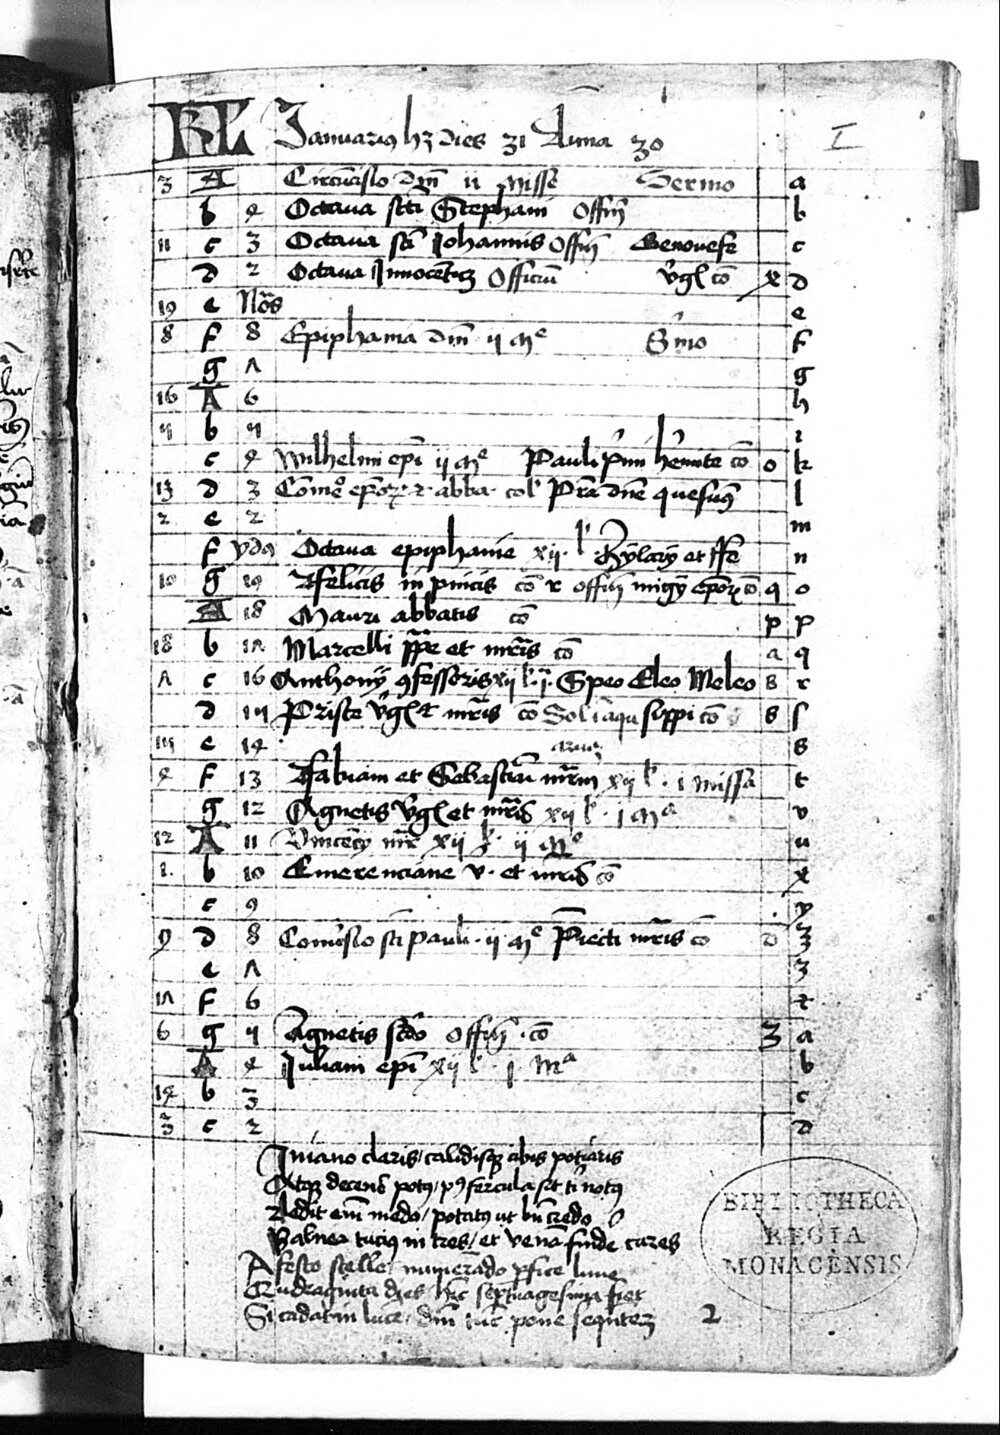 KL Januarius hz dies 31 Luna 30 I
3 A Circūcisio dn̄i ii misse Sermo a
b 4 Octava scti Stephani Offm̄ b
11 c 3 Octava sct̄i Johannis Offm̄ Genovefe c
d 2 Octava Innocentiū Officiū v̓gl cō x d
19 e No̅s e
8 f 8 Epiphania dn̄i ii mᵉ S̓mo f
g ʌ g
16 A 6 h
5 b 5 i
c 4 Wilhelmi ep̄i ii mᵉ Pauli p̓mi h̓emite cō o k
13 d 3 Com̄eō ep̄oꝝ et abba col Pr̄a dn̄e quesumꝰ l
2 e 2 m
f ydꝰ Octava epiphanie xii l Hylarij et n
10 g 19 Felicis in pincis cō offm̄ cō q o
A 18 Mauri abbatis cō p p
18 b 1ʌ Marcelli pp̄e et mr̄is cō a q
ʌ c 16 Anthonij ꝯfessoris xii l ii Speo Eleo Meleo 8 r
d 15 Prisce v̓gl et mr̄is cō Sol ī aqu cō 8 ſ
15 e 14 s
4 f 13 Fabiani et Sebastiani mr̄m xii l i missa t
g 12 Agnetis v̓gl et mr̄is xii l j mᵃ v
12 A 11 Vincēcij mr̄ xii l ii mᵉ u
1 b 10 Emerenciane v et mr̄is cō x
c 9 y
9 d 8 Conv̓sio sct̄i Pauli ii mᵉ Piecti mr̄is cō d z
e ʌ 3
1ʌ f 6 t
6 g 5 Agnetis scd̄o Offm̄ cō 3 a
A 4 Juliani ep̄i xii l j Mᵃ b
14 b 3 c
3 c 2 d
In iano claris calidisqꝫ cibis potiaris
Atqꝫ decens potꝰ pꝰ fercula sit ti notꝰ
Ledit em̄ medo potatꝰ ut bn̄ credo
Balnea tuciꝰ intres et venā finde cares
A festo stelle numerādo pfice lune
Quadraginta dies hīc septuagesima fiet
Si cadat in luce dn̄i tūc pone sequitez 2
BIBLIOTHECA
REGIA
MONACENSIS